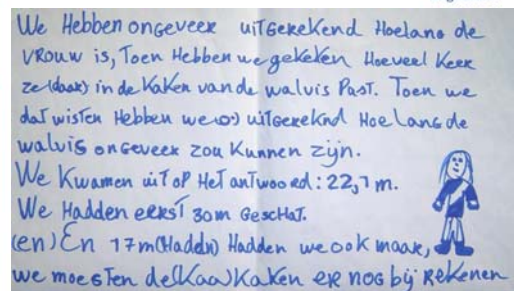 We Hebben ongeveer uitgerekend Hoelang de
vrouw is, Toen Hebben we gekeken Hoeveel Keer
ze (daar) in de Kaken van de walvis Past. Toen we
dat wisten Hebben we uitgereknd Hoe Lang de
walvis ongeveer zou Kunnen zijn.
We Kwamen uit op Het antwoord: 22,1 m.
We Hadden eerst 30m Geschat.
(en) En 17m (Hadden) Hadden we ook maar,
we moesten de (Kaa) Kaken er nog bij rekenen